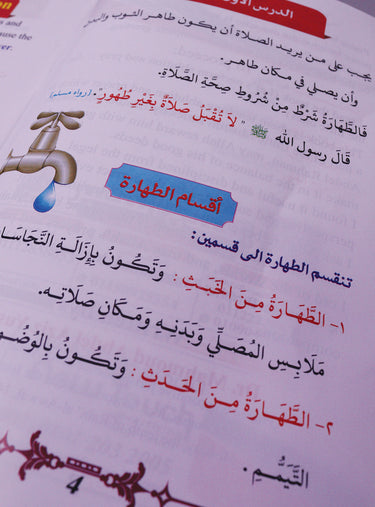 الدرس الأول
يجب على من يريد الصلاة أن يكون طاهر الثوب والبدن
وأن يصلي في مكان طاهر.
فَالطَّهَارَةُ شَرْطٌ مِنْ شُرُوطِ صِحَّةِ الصَّلَاةِ.
قَالَ رسول الله ﷺ "لاَ تُقْبَلُ صَلَاةٌ بِغَيْرِ طُهُورٍ". (رواه مسلم)
أقسام الطهارة
تنقسم الطهارة الى قسمين:
١- الطَّهَارَةُ مِنَ الخَبَثِ : وَتَكُونُ بِإِزَالَةِ النَّجَاسَا
مَلَابِسِ المُصَلِّي وَبَدَنِهِ وَمَكَانِ صَلَاتِه.
٢- الطَّهَارَةُ مِنَ الحَدَثِ : وَتَكُونُ بِالْوُضُو
التَّيَمُّمِ.
4
and
ause the
er.